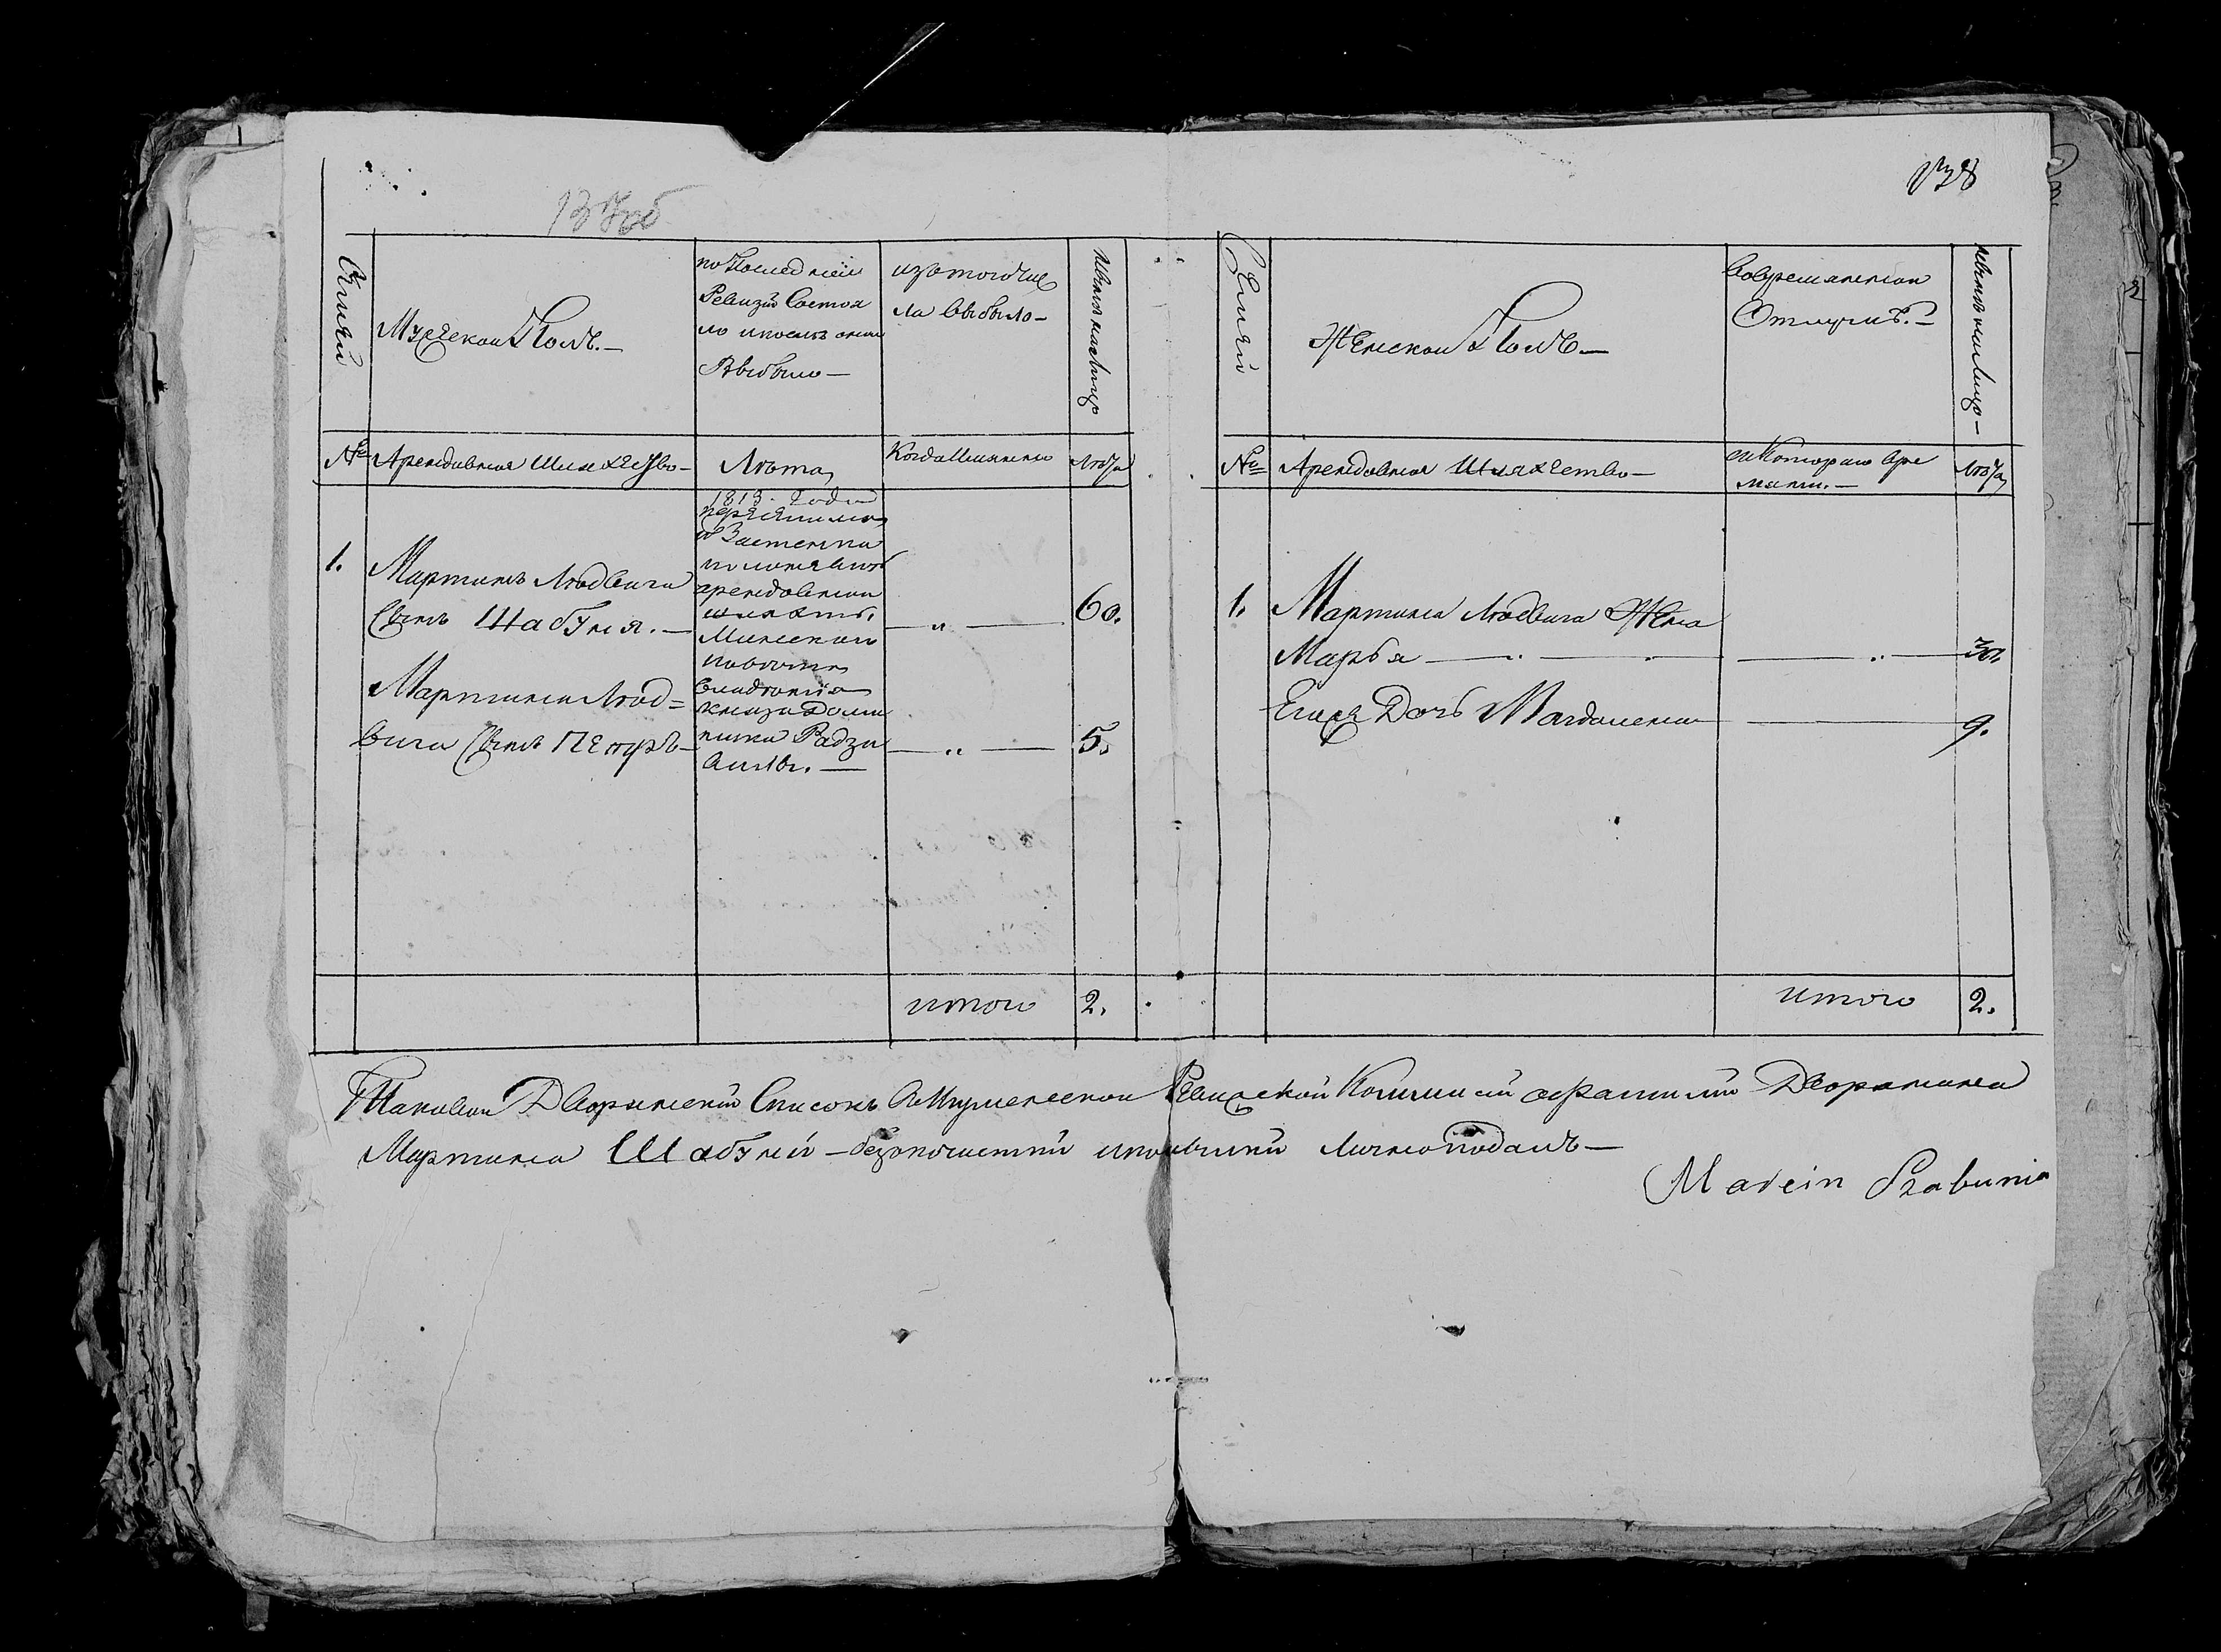 137об
138
Семей
Мужескои Полъ.—
по последней
Ревизіи Состоя
ло ипослѣ оной
Выбыло—
изътогочис
ла Выбыло—
Нынѣ налицо
№ Арендовная Шляхество—
Лѣта
Когда Имянно
Лѣта
1. Мартинъ Людвига
Сынъ Шабуня.—
1813. Года
переѣхилъ
Застенка
арендовнои
шляхты.
Минскаго
повѣта
владѣнія
князя Доми
ника Радзи
вилы.—
— „ — 60.
Мартина Люд=
вига Сынъ Петръ—
— „ — 5.
итого 2.
Семей
Женскои Полъ—
Вовременнои
Отлучкѣ.—
Нынѣ налицо—
№ Арендовная Шляхество—
скотораго вре
мяни.—
Лѣта
1. Мартина Людвига Жена
Марья — 30.
Егоже Дочь Магдалена — 9.
итого 2.
Таковои Дворянскій Списокъ Игуменскои Ревизской Комиссіи Дворянина
Мартина Шабуни — Личноподалъ—
Marcin Szabunia